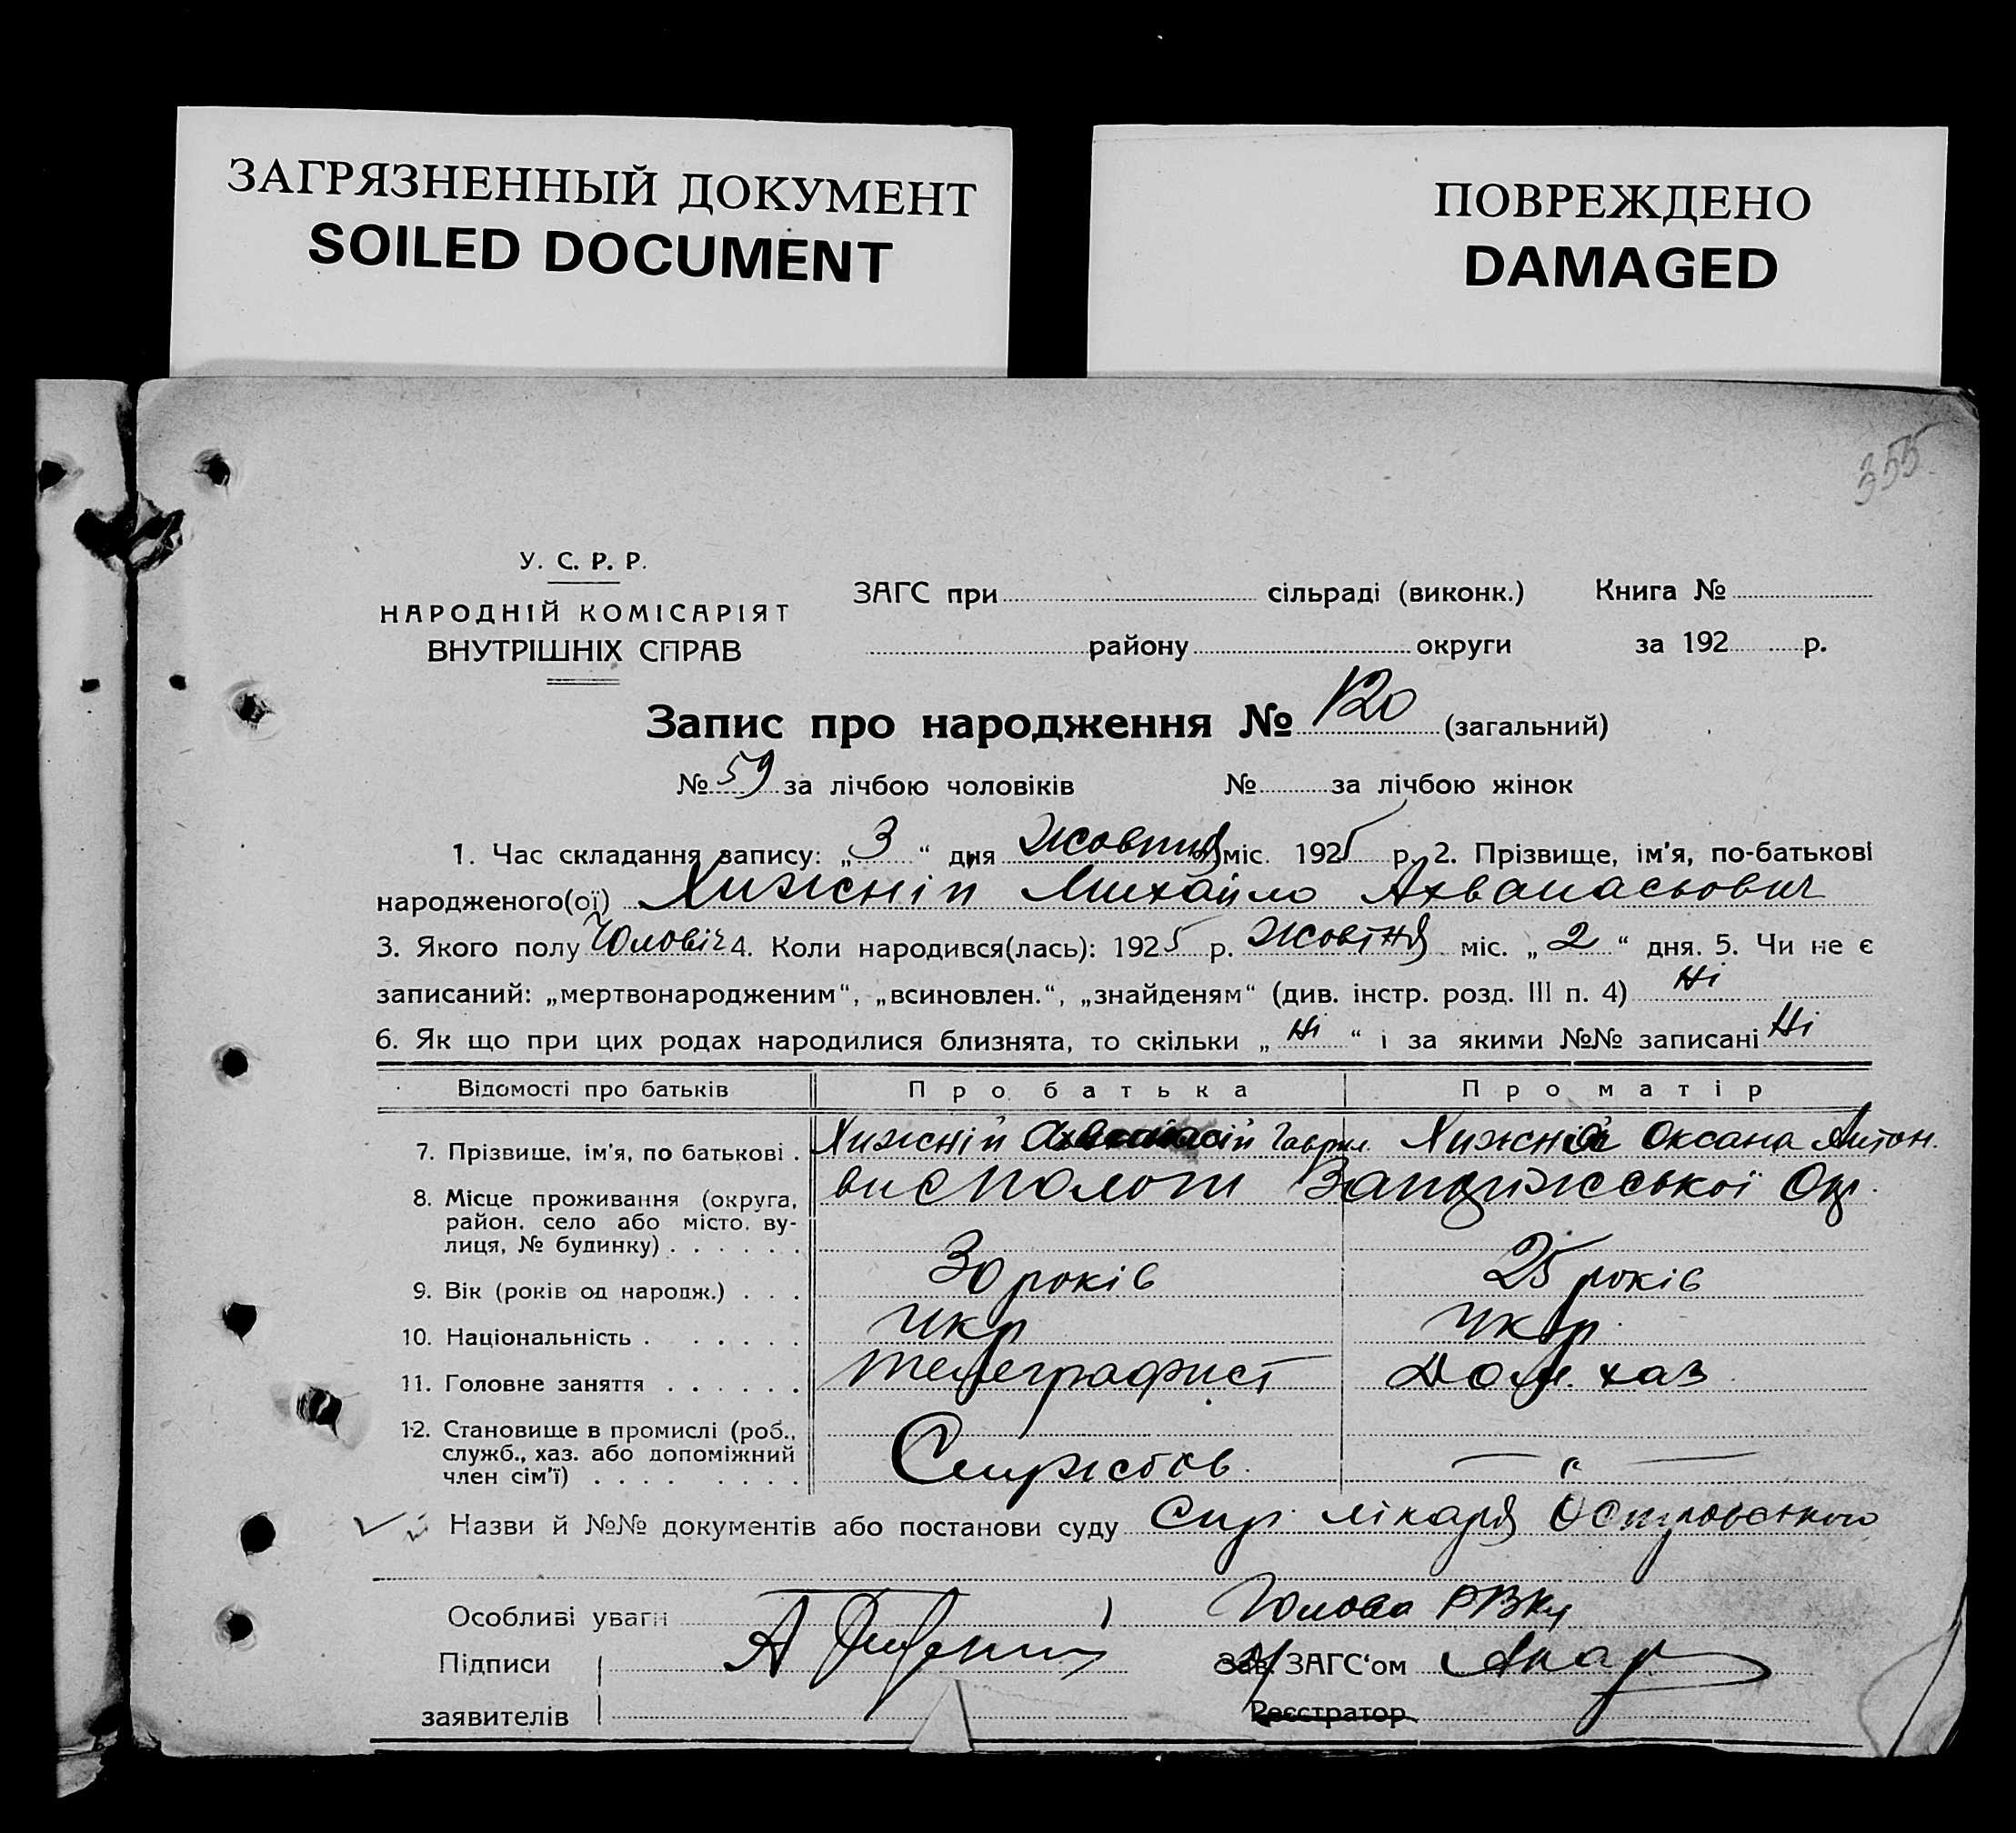 ЗАГРЯЗНЕННЫЙ ДОКУМЕНТ
SOILED DOCUMENT
ПОВРЕЖДЕНО
DAMAGED
355
У. С. Р. Р.
НАРОДНІЙ КОМІСАРІЯТ
ВНУТРІШНІХ СПРАВ
ЗАГС при сільраді (виконк.) Книга №
району округи за 192 р.
Запис про народження № 120 (загальний)
№ 59 за лічбою чоловіків № за лічбою жінок
1. Час складання запису: „3“ дня Жовтня міс. 1925 р. 2. Прізвище, ім'я, по-батькові
народженого(ої) Хижній Михайло Ахванасьович
3. Якого полу Чоловіч 4. Коли народився(лась): 1925 р. Жовтня міс. „2“ дня. 5. Чи не є
записаний: „мертвонародженим“, „всиновлен.“, „знайденям“ (див. інстр. розд. III п. 4) Ні
6. Як що при цих родах народилися близнята, то скільки „Ні“ і за якими №№ записані Ні
Відомості про батьків Про батька Про матір
7. Прізвище, ім'я, по батькові . Хижній Ахванасій Гаврил. Хижня Оксана Антон.
8. Місце проживання (округа,
район, село або місто, ву-
лиця, № будинку) . . . . . .
9. Вік (років од народж.) . . . 30 років 25 років
10. Національність . . . . . . Укр Укр.
11. Головне заняття . . . . . . телеграфист Дом. хаз
12. Становище в промислі (роб.,
служб., хаз. або допоміжний
член сім'ї) . . . . . . . . Службов. — " —
Назви й №№ документів або постанови суду Спр. лікаря Островського
Особливі уваги Голова РВК
Підписи Зав. ЗАГС'ом
заявителів Реєстратор